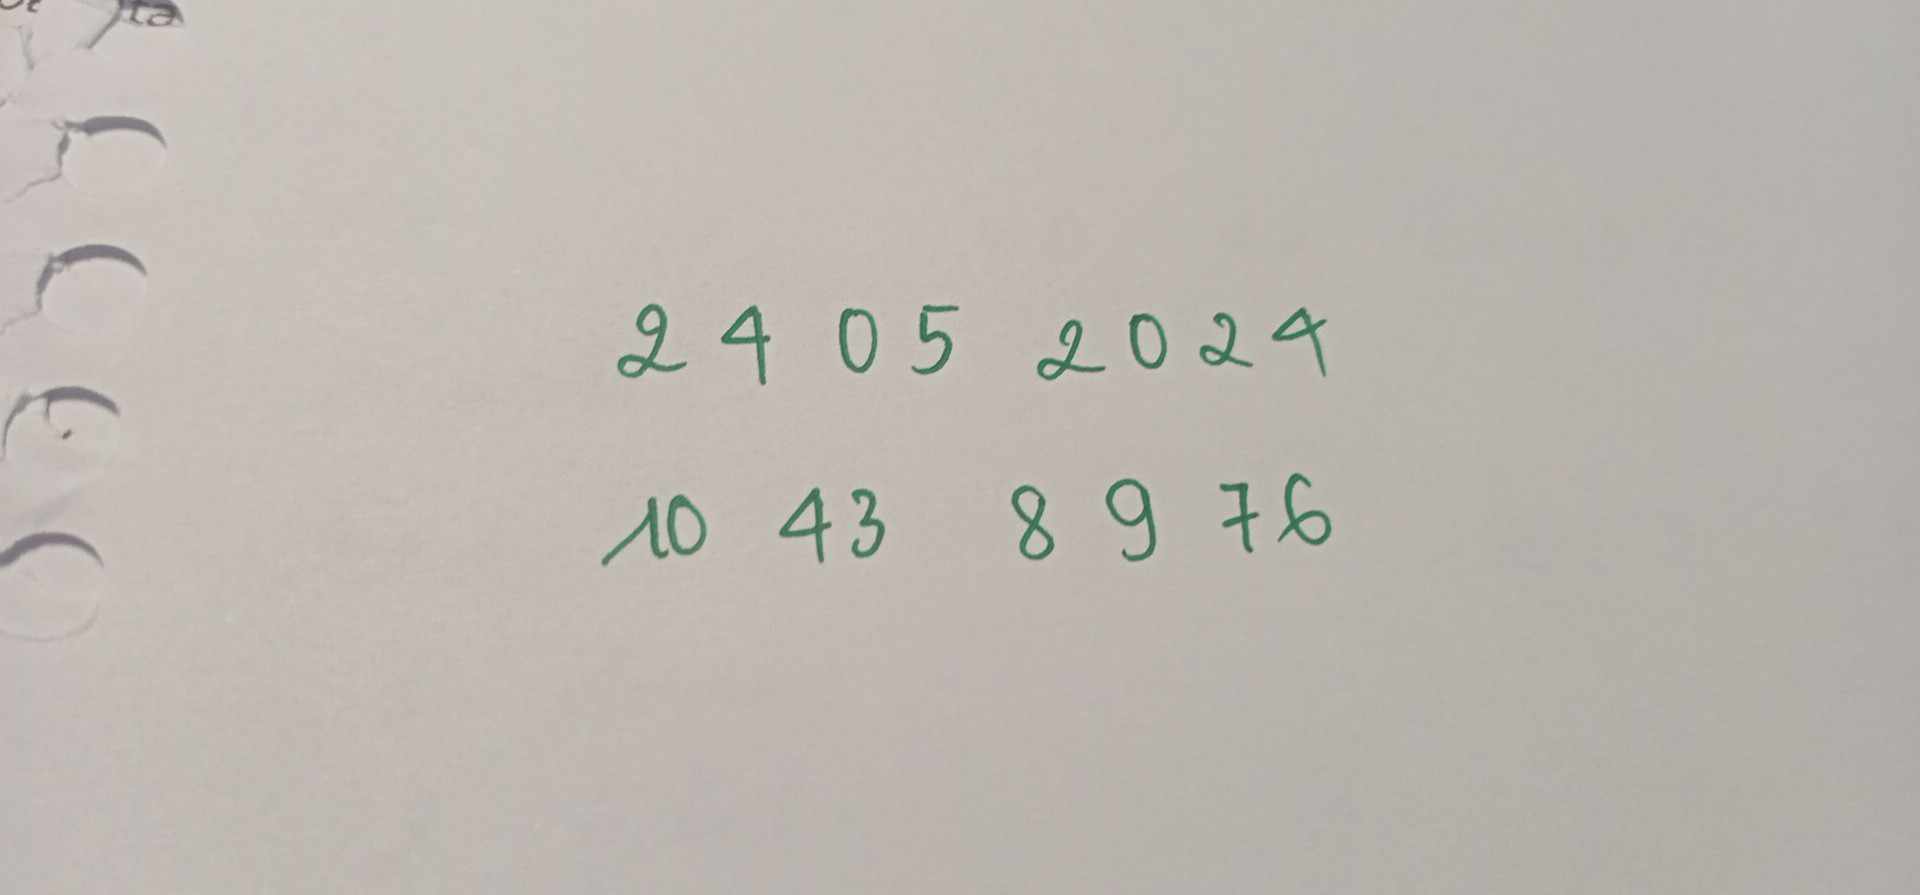 24 05 2024
10 43 8976